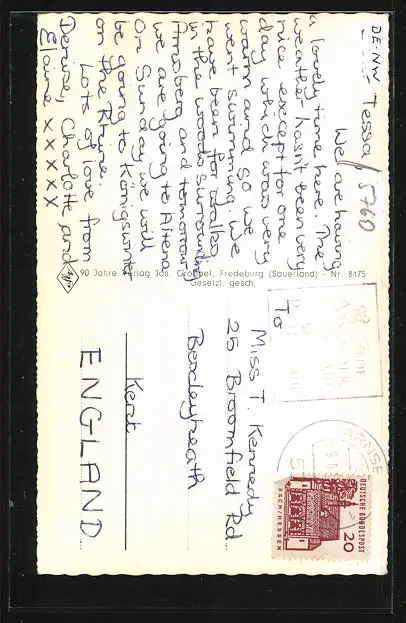 DE-NW
5760
Tessa,
We are having
a lovely time here. The
weather hasn't been very
nice except for one
day which was very
warm and so we
went swimming. We
have been for walks
in the woods surrounding
Arnsberg and tomorrow
we are going to Altena
On Sunday we will
be going to Königswinter
on the Rhine.
Lots of love from
Denise, Charlotte and
Elaine x x x x x
90 Jahre Verlag Jos. Grobbel, Fredeburg (Sauerland) - Nr. 8475
Gesetzl. gesch.
To
Miss T. Kennedy
25 Broomfield Rd
Bexleyheath
Kent
ENGLAND
DEUTSCHE BUNDESPOST
20